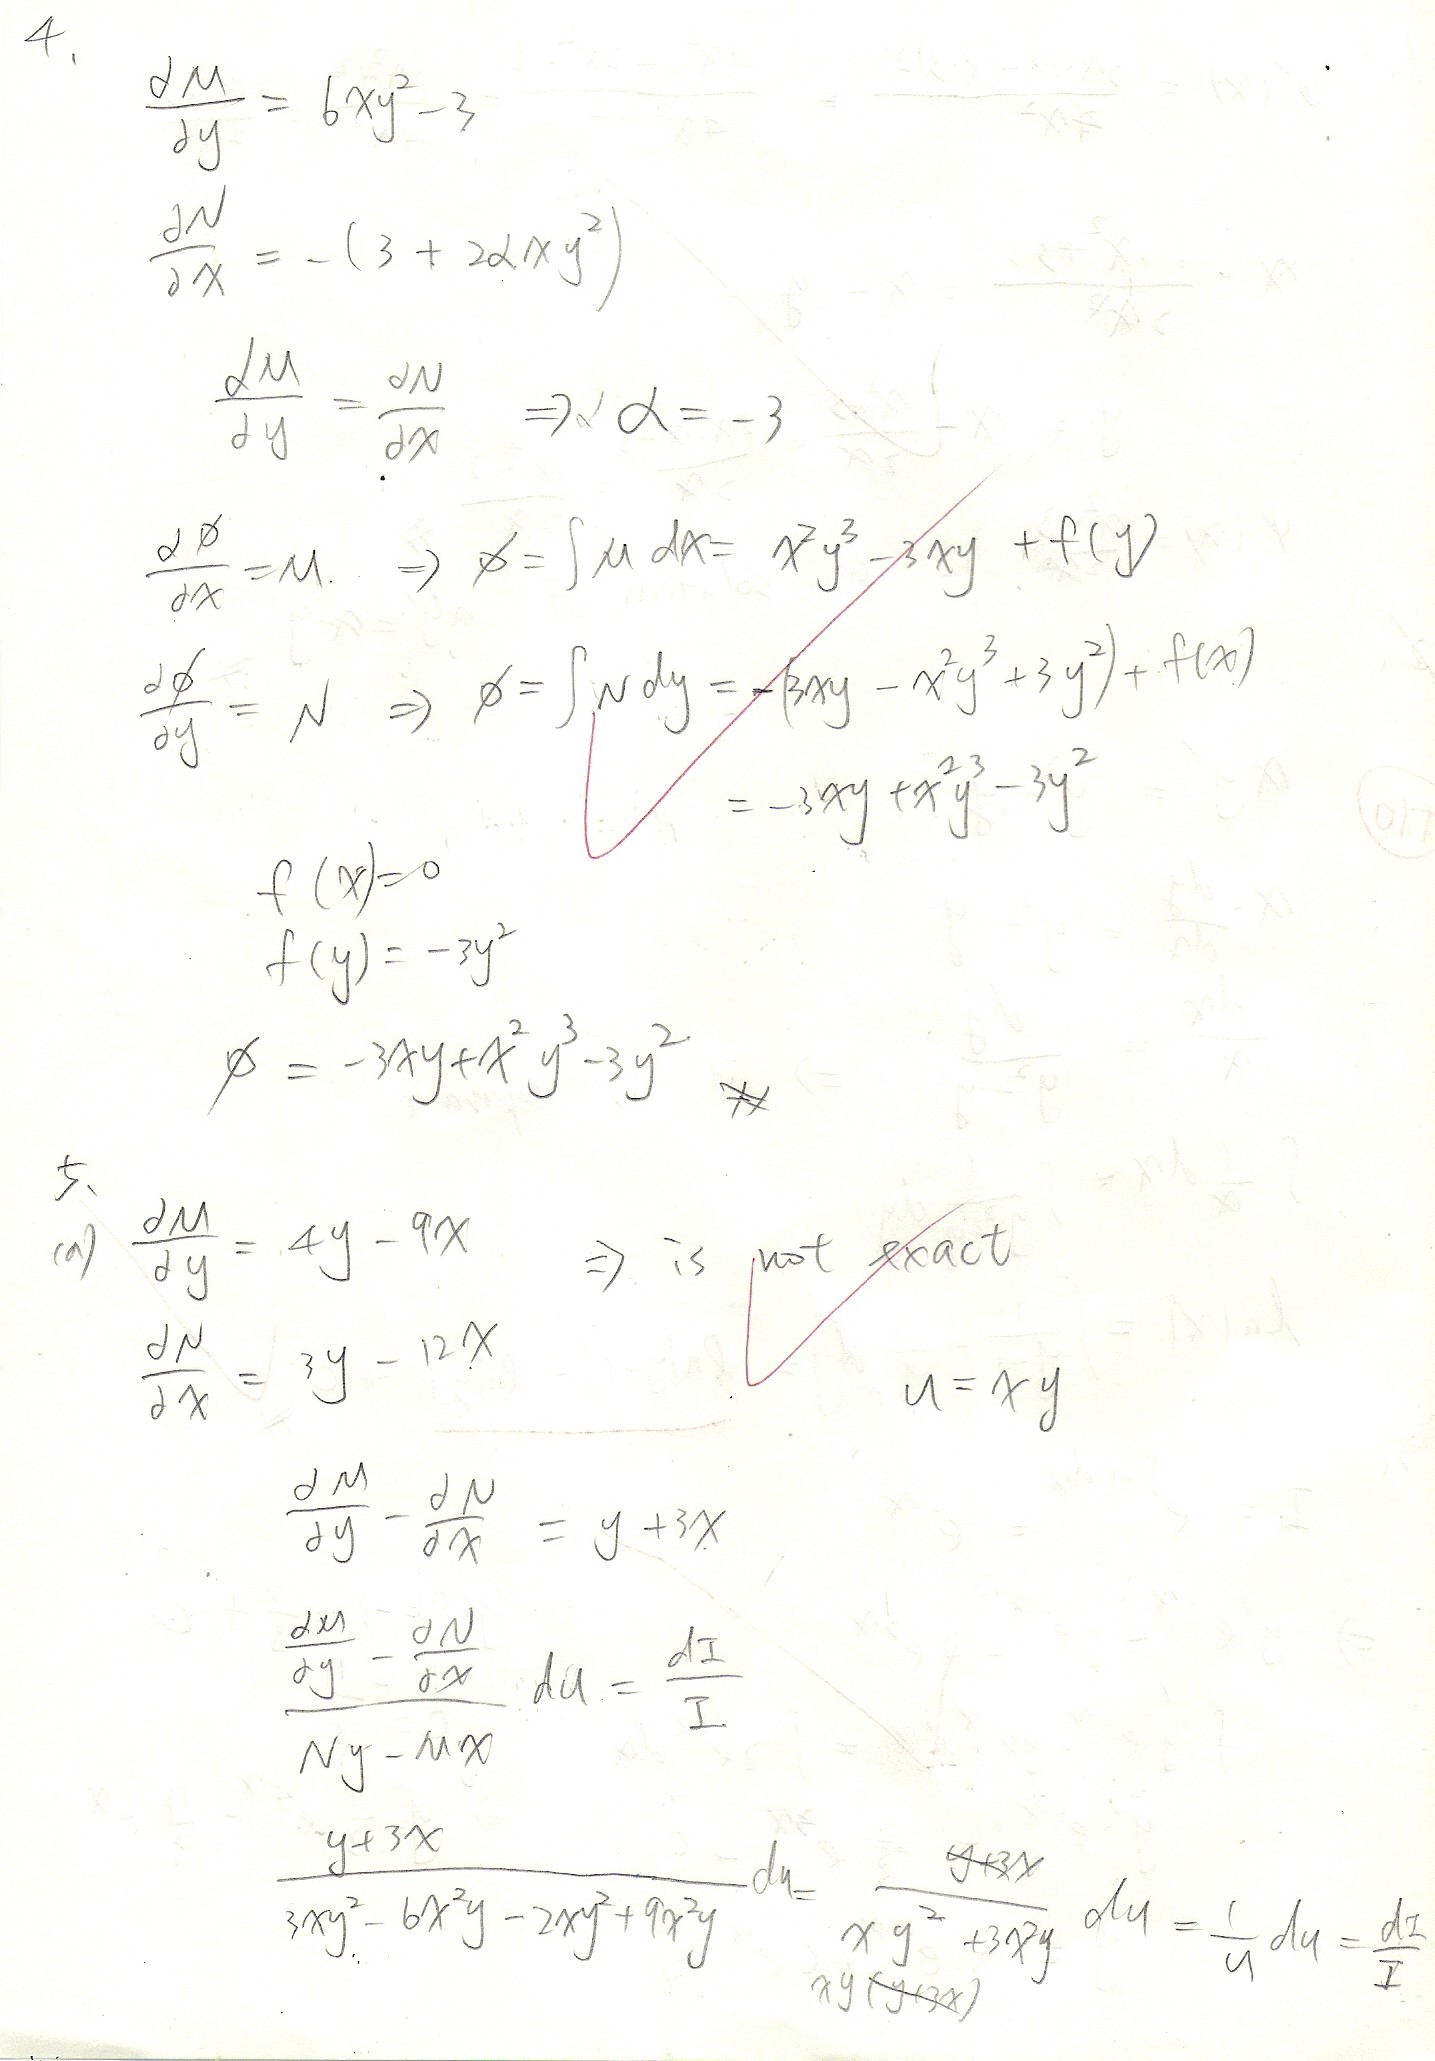 4.
∂M/∂y = 6xy² - 3
∂N/∂x = -(3 + 2αxy²)
∂M/∂y = ∂N/∂x ⇒ α = -3
∂φ/∂x = M. ⇒ φ = ∫M dx = x²y³ - 3xy + f(y)
∂φ/∂y = N ⇒ φ = ∫N dy = -(3xy - x²y³ + 3y²) + f(x)
= -3xy + x²y³ - 3y²
f(x) = 0
f(y) = -3y²
φ = -3xy + x²y³ - 3y² #
5.
(a) ∂M/∂y = 4y - 9x ⇒ is not exact
∂N/∂x = 3y - 12x
u = xy
∂M/∂y - ∂N/∂x = y + 3x
(∂M/∂y - ∂N/∂x)/(Ny - Mx) du = dI/I
(y+3x)/(3xy² - 6x²y - 2xy² + 9x²y) du = (y+3x)/(xy² + 3x²y) du = 1/u du = dI/I
xy(y+3x)